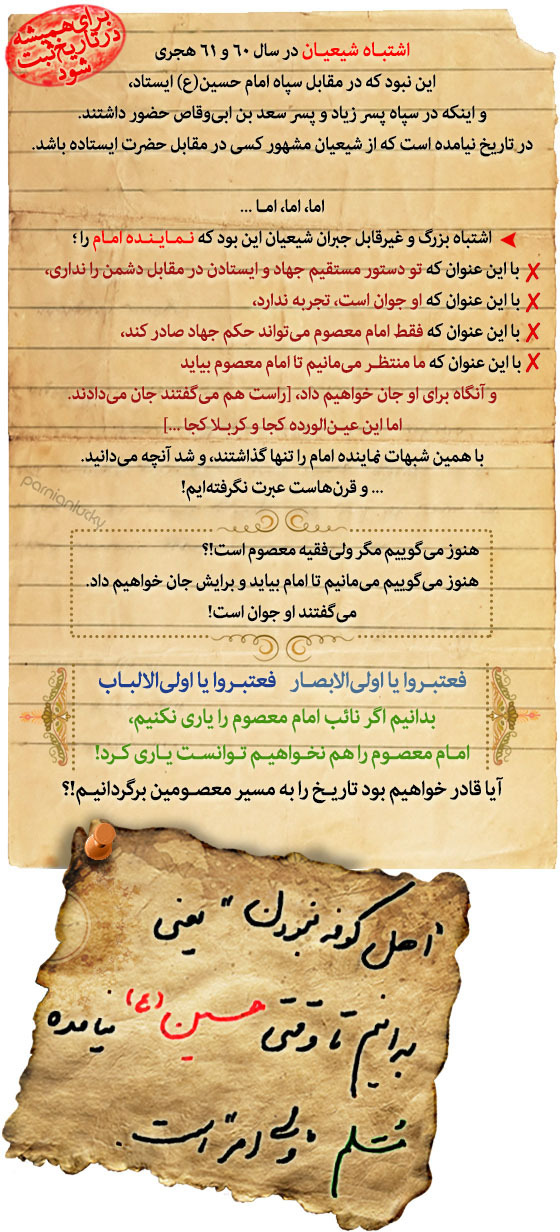 برای همیشه
در تاریخ ثبت
شود
اشتباه شیعیان در سال ۶۰ و ۶۱ هجری
این نبود که در مقابل سپاه امام حسین(ع) ایستاد،
و اینکه در سپاه پسر زیاد و پسر سعد بن ابی‌وقاص حضور داشتند.
در تاریخ نیامده است که از شیعیان مشهور کسی در مقابل حضرت ایستاده باشد.
اما، اما، اما ...
اشتباه بزرگ و غیرقابل جبران شیعیان این بود که نـمـایـنـده امـام را ؛
با این عنوان که تو دستور مستقیم جهاد و ایستادن در مقابل دشمن را نداری،
با این عنوان که او جوان است، تجربه ندارد،
با این عنوان که فقط امام معصوم می‌تواند حکم جهاد صادر کند،
با این عنوان که ما منتظـر می‌مانیم تا امام معصوم بیاید
و آنگاه برای او جان خواهیم داد، [راست هم می‌گفتند جان می‌دادند.
اما این عیـن‌الورده کجا و کربـلا کجا ...]
با همین شبهات نماینده امام را تنها گذاشتند، و شد آنچه می‌دانید.
... و قرن‌هاست عبرت نگرفته‌ایم!
parnianlucky
هنوز می‌گوییم مگر ولی‌فقیه معصوم است!؟
هنوز می‌گوییم می‌مانیم تا امام بیاید و برایش جان خواهیم داد.
می‌گفتند او جوان است!
فعتبـروا یا اولی‌الابصـار فعتبـروا یا اولی‌الالبـاب
بدانیم اگر نائب امام معصوم را یاری نکنیم،
امـام معصـوم را هم نخـواهیـم تـوانسـت یـاری کـرد!
آیا قادر خواهیم بود تاریـخ را به مسیر معصـومین برگردانیـم!؟
"اهل کوفه نبودن" یعنی
بدانیم تا وقتی حسین(ع) نیامده
مُسْلم "ولی امر" است.